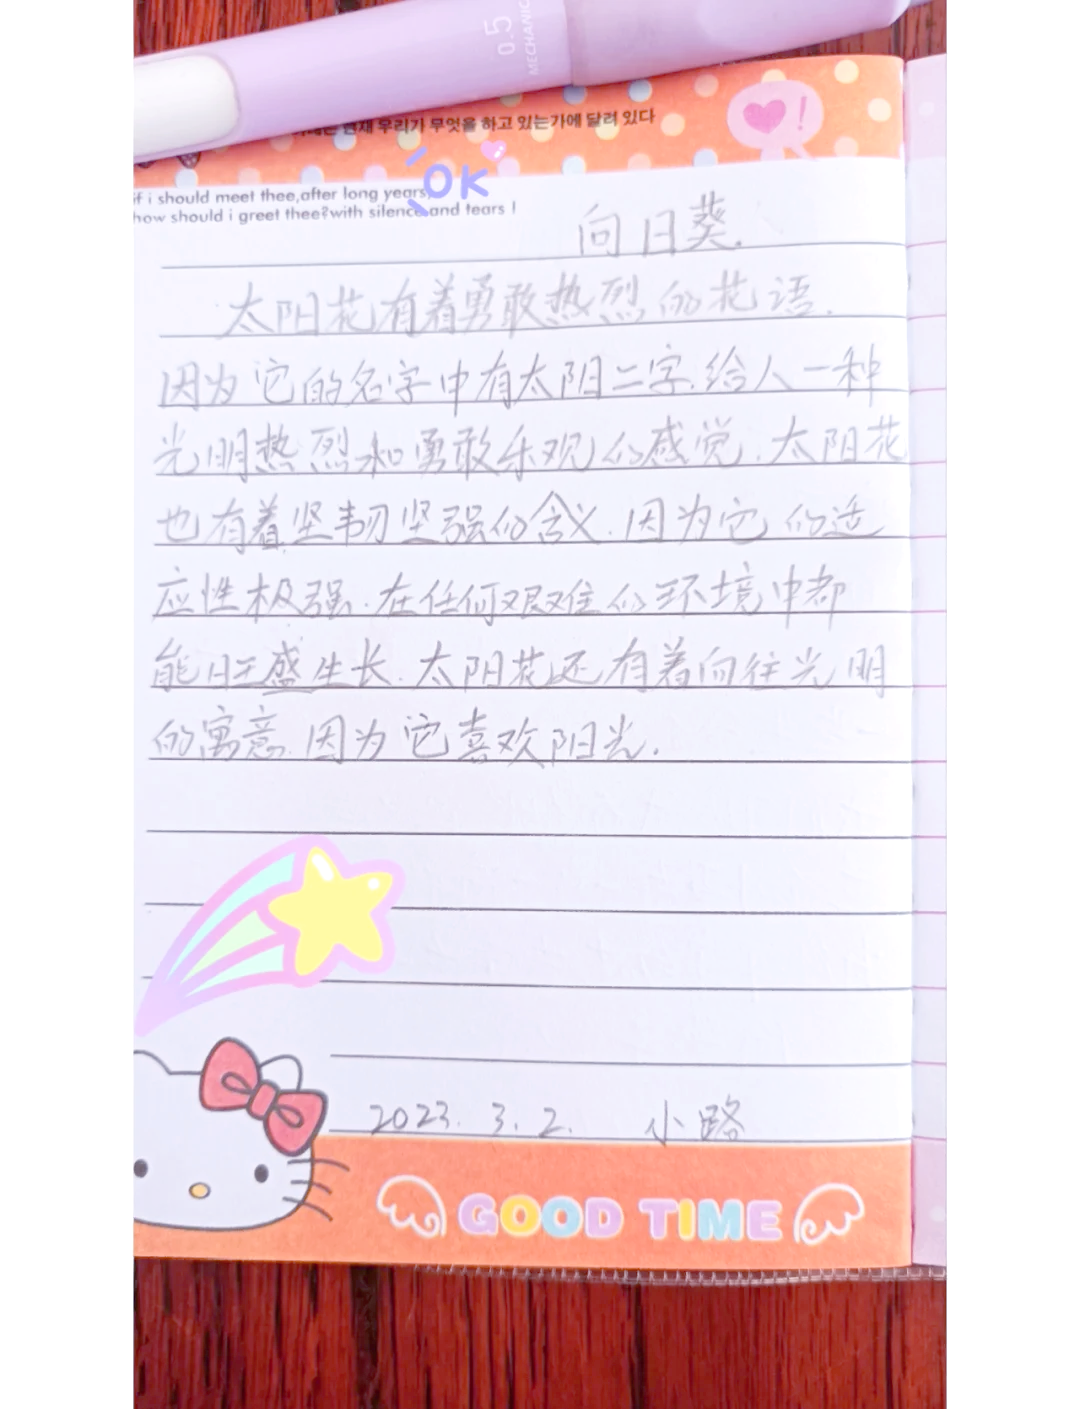 0.5
MECHANIC
현재 우리가 무엇을 하고 있는가에 달려 있다
!
OK
if i should meet thee,after long years,
how should i greet thee?with silence and tears !
向日葵.
太阳花有着勇敢热烈的花语.
因为它的名字中有太阳二字.给人一种
光明热烈和勇敢乐观的感觉.太阳花
也有着坚韧坚强的含义.因为它的适
应性极强.在任何艰难的环境中都
能旺盛生长.太阳花还有着向往光明
的寓意.因为它喜欢阳光.
2023.3.2. 小路
GOOD TIME